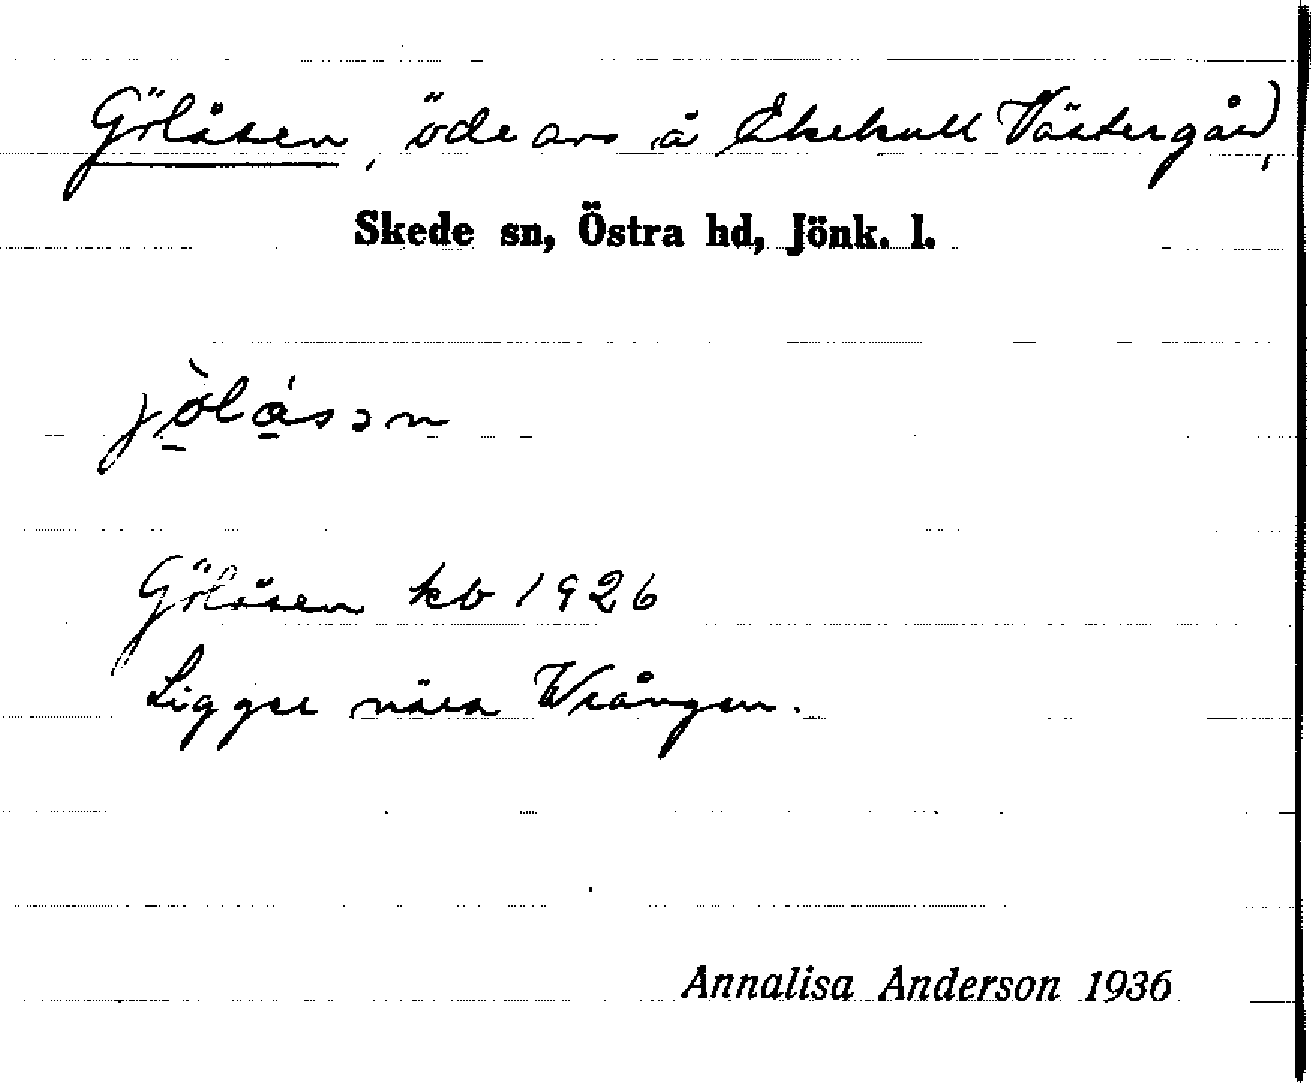 Gölåsen, öde avs å Ekekull Västergård,
Skede sn, Östra hd, Jönk. l.
jö̀lǻsən
Gölåsen kb 1926
Ligger nära Wrången.
Annalisa Anderson 1936